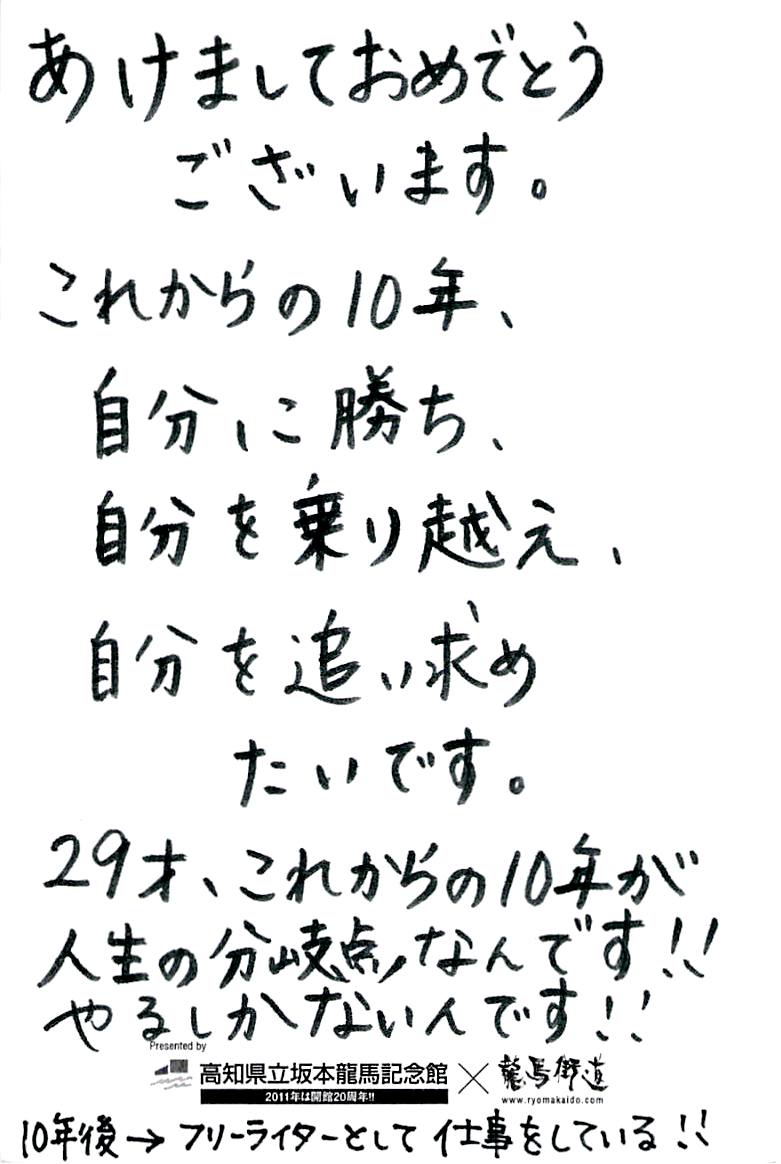 あけましておめでとう
ございます。
これからの10年、
自分に勝ち、
自分を乗り越え、
自分を追い求め
たいです。
29才、これからの10年が
人生の分岐点なんです!!
やるしかないんです!!
Presented by
高知県立坂本龍馬記念館 × 龍馬街道
2011年は開館20周年!! www.ryomakaido.com
10年後→フリーライターとして仕事をしている!!